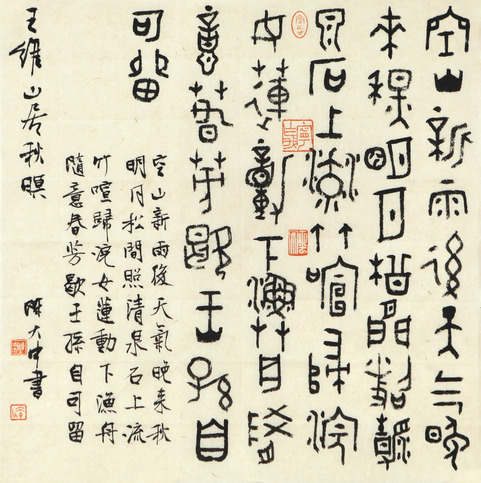 空山新雨後天气晚
來秋明月松間照清
泉石上流竹喧歸浣
女蓮動下漁舟隨
意春芳歇王孫自
可留
空山新雨後天氣晚来秋
明月松間照清泉石上流
竹喧歸浣女蓮動下漁舟
隨意春芳歇王孫自可留
王維山居秋暝
陳大中書